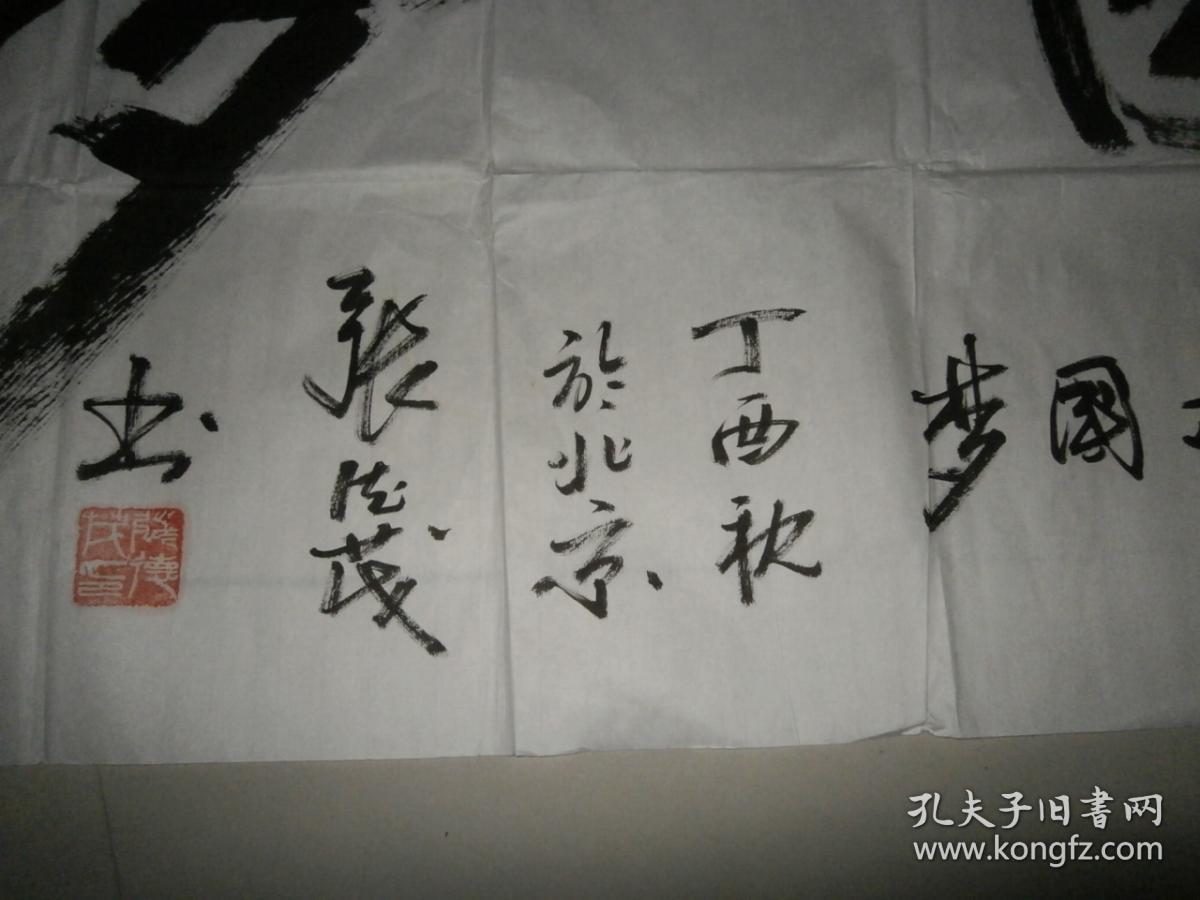 國
梦
丁酉秋
於北京
張德茂
书
張德茂印
孔夫子旧書网
www.kongfz.com